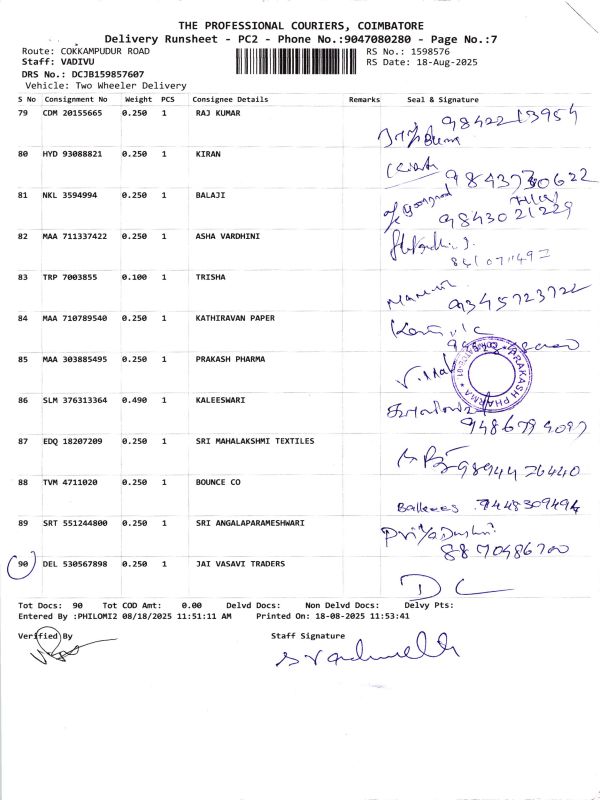 THE PROFESSIONAL COURIERS, COIMBATORE
Delivery Runsheet - PC2 - Phone No.:9047080280 - Page No.:7
Route: COKKAMPUDUR ROAD
RS No.: 1598576
Staff: VADIVU
RS Date: 18-Aug-2025
DRS No.: DCJB159857607
Vehicle: Two Wheeler Delivery
S No Consignment No Weight PCS Consignee Details Remarks Seal & Signature
79 CDM 20155665 0.250 1 RAJ KUMAR 9842213954
80 HYD 93088821 0.250 1 KIRAN
81 NKL 3594994 0.250 1 BALAJI 9843021229
82 MAA 711337422 0.250 1 ASHA VARDHINI
83 TRP 7003855 0.100 1 TRISHA 9345723722
84 MAA 710789540 0.250 1 KATHIRAVAN PAPER
85 MAA 303885495 0.250 1 PRAKASH PHARMA PRAKASH PHARMA
86 SLM 376313364 0.490 1 KALEESWARI
87 EDQ 18207209 0.250 1 SRI MAHALAKSHMI TEXTILES
88 TVM 4711020 0.250 1 BOUNCE CO 9448309494
89 SRT 551244800 0.250 1 SRI ANGALAPARAMESHWARI 8870486700
90 DEL 530567898 0.250 1 JAI VASAVI TRADERS D C
Tot Docs: 90 Tot COD Amt: 0.00 Delvd Docs: Non Delvd Docs: Delvy Pts:
Entered By :PHILOMI2 08/18/2025 11:51:11 AM Printed On: 18-08-2025 11:53:41
Verified By Staff Signature